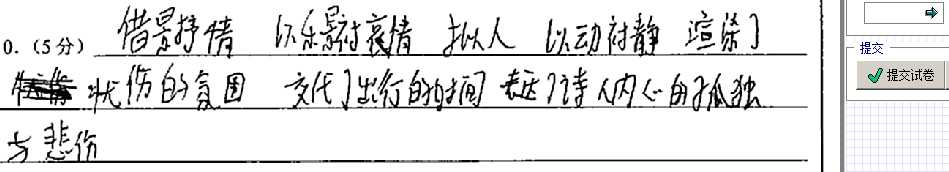 0.（5分） 借景抒情 以乐景衬哀情 拟人 以动衬静 渲染了
忧伤的氛围 交代了出行的时间 表达了诗人内心的孤独
与悲伤
提交
提交试卷